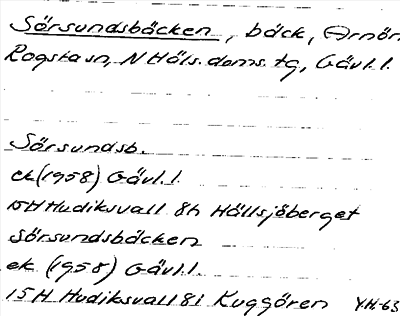 Sörsundsbäcken, bäck, Arnön
Rogsta sn, N Häls. doms. tg, Gävl. l.
Sörsundsb.
ek (1958) Gävl. l.
15H Hudiksvall 8h Hällsjöberget
Sörsundsbäcken
ek (1958) Gävl. l.
15H Hudiksvall 8i Kuggören YH-63